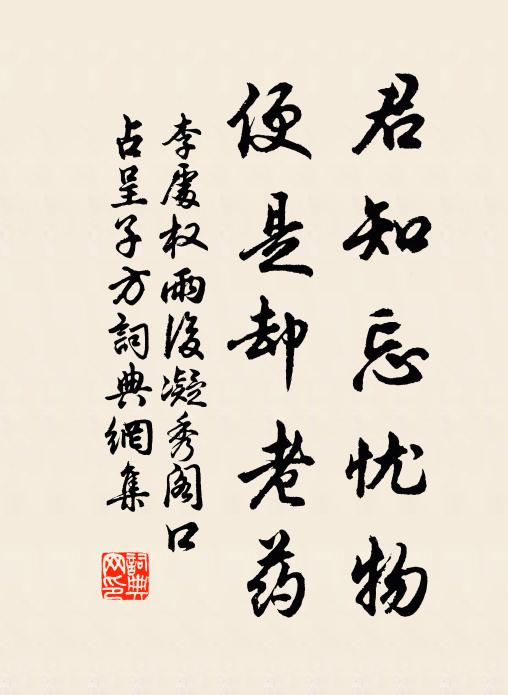 君知忘忧物
便是却老药
李處权雨後凝秀阁口
占呈子方詞典網集
詞典
网印